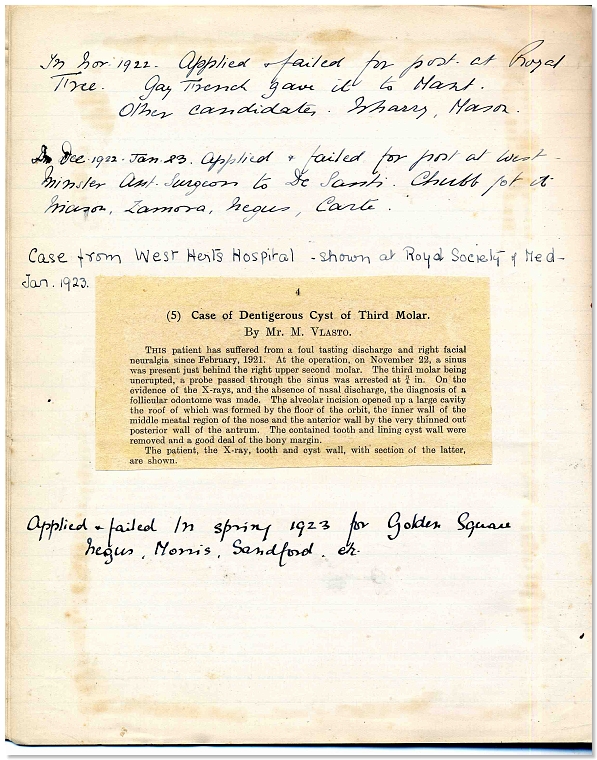 In Nov. 1922. Applied & failed for post at Royal
Free. Gay French gave it to
Other candidates. Wharry, Mason.
In Dec. 1922 - Jan. 23. Applied & failed for post at West-
minster Ast. Surgeon to De Santi. Chubb got it
Mason, Zamora, Negus, Carte.
Case from West Herts Hospital - shown at Royal Society of Med-
Jan. 1923.
4
(5) Case of Dentigerous Cyst of Third Molar.
By Mr. M. VLASTO.
THIS patient has suffered from a foul tasting discharge and right facial
neuralgia since February, 1921. At the operation, on November 22, a sinus
was present just behind the right upper second molar. The third molar being
unerupted, a probe passed through the sinus was arrested at ¾ in. On the
evidence of the X-rays, and the absence of nasal discharge, the diagnosis of a
follicular odontome was made. The alveolar incision opened up a large cavity
the roof of which was formed by the floor of the orbit, the inner wall of the
middle meatal region of the nose and the anterior wall by the very thinned out
posterior wall of the antrum. The contained tooth and lining cyst wall were
removed and a good deal of the bony margin.
The patient, the X-ray, tooth and cyst wall, with section of the latter,
are shown.
Applied & failed In spring 1923 for Golden Square
Negus, Morris, Sandford. etc.